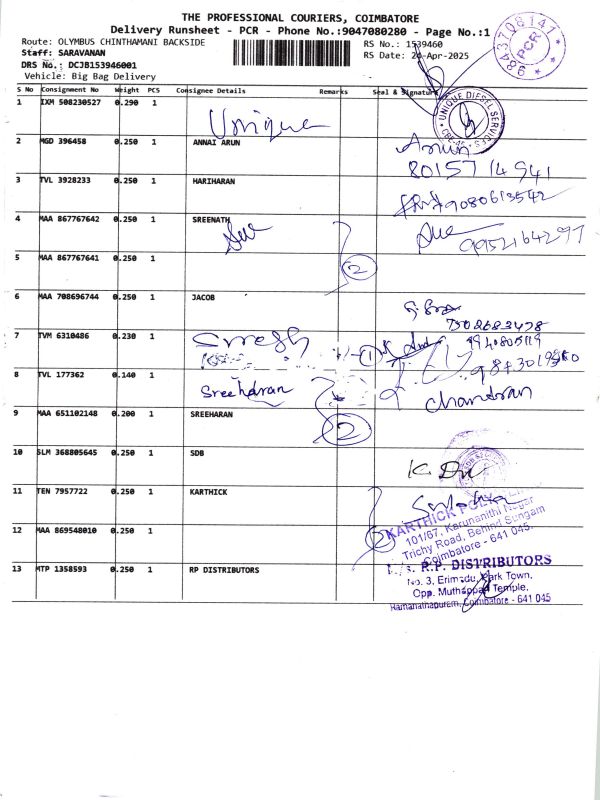 THE PROFESSIONAL COURIERS, COIMBATORE
Delivery Runsheet - PCR - Phone No.:9047080280 - Page No.:1
Route: OLYMBUS CHINTHAMANI BACKSIDE
RS No.: 1539460
Staff: SARAVANAN
RS Date: 24-Apr-2025
DRS No.: DCJB153946001
Vehicle: Big Bag Delivery
9843706141
PCR
S No Consignment No Weight PCS Consignee Details Remarks Seal & Signature
1 IXM 508230527 0.290 1
Unique
UNIQUE DIESEL SERVICES
2 MGD 396458 0.250 1 ANNAI ARUN
Arun
80157 14941
3 TVL 3928233 0.250 1 HARIHARAN
9080613542
4 MAA 867767642 0.250 1 SREENATH
9952164297
5 MAA 867767641 0.250 1
2
6 MAA 708696744 0.250 1 JACOB
7502683478
7 TVM 6310486 0.230 1
Suresh
1
8 TVL 177362 0.140 1
Sreeharan
Chandran
9 MAA 651102148 0.200 1 SREEHARAN
2
10 SLM 368805645 0.250 1 SDB
11 TEN 7957722 0.250 1 KARTHICK
KARTHICK
101/67, Karunanithi Nagar
12 MAA 869548010 0.250 1
2
Trichy Road, Behind Sungam
Coimbatore - 641 045.
13 MTP 1358593 0.250 1 RP DISTRIBUTORS
R.P. DISTRIBUTORS
No. 3, Erimedu, Park Town,
Opp. Muthappan Temple,
Ramanathapuram, Coimbatore - 641 045